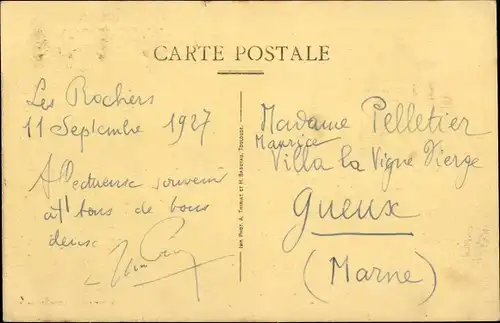 CARTE POSTALE
Les Rochers
11 Septembre 1927
Affectueux souvenir
à tous de tous
deux
IMP. PHOT. A. THIRIAT ET H. BASUYAU, TOULOUSE.
Madame Pelletier
Maurice
Villa la Vigne Vierge
Gueux
(Marne)